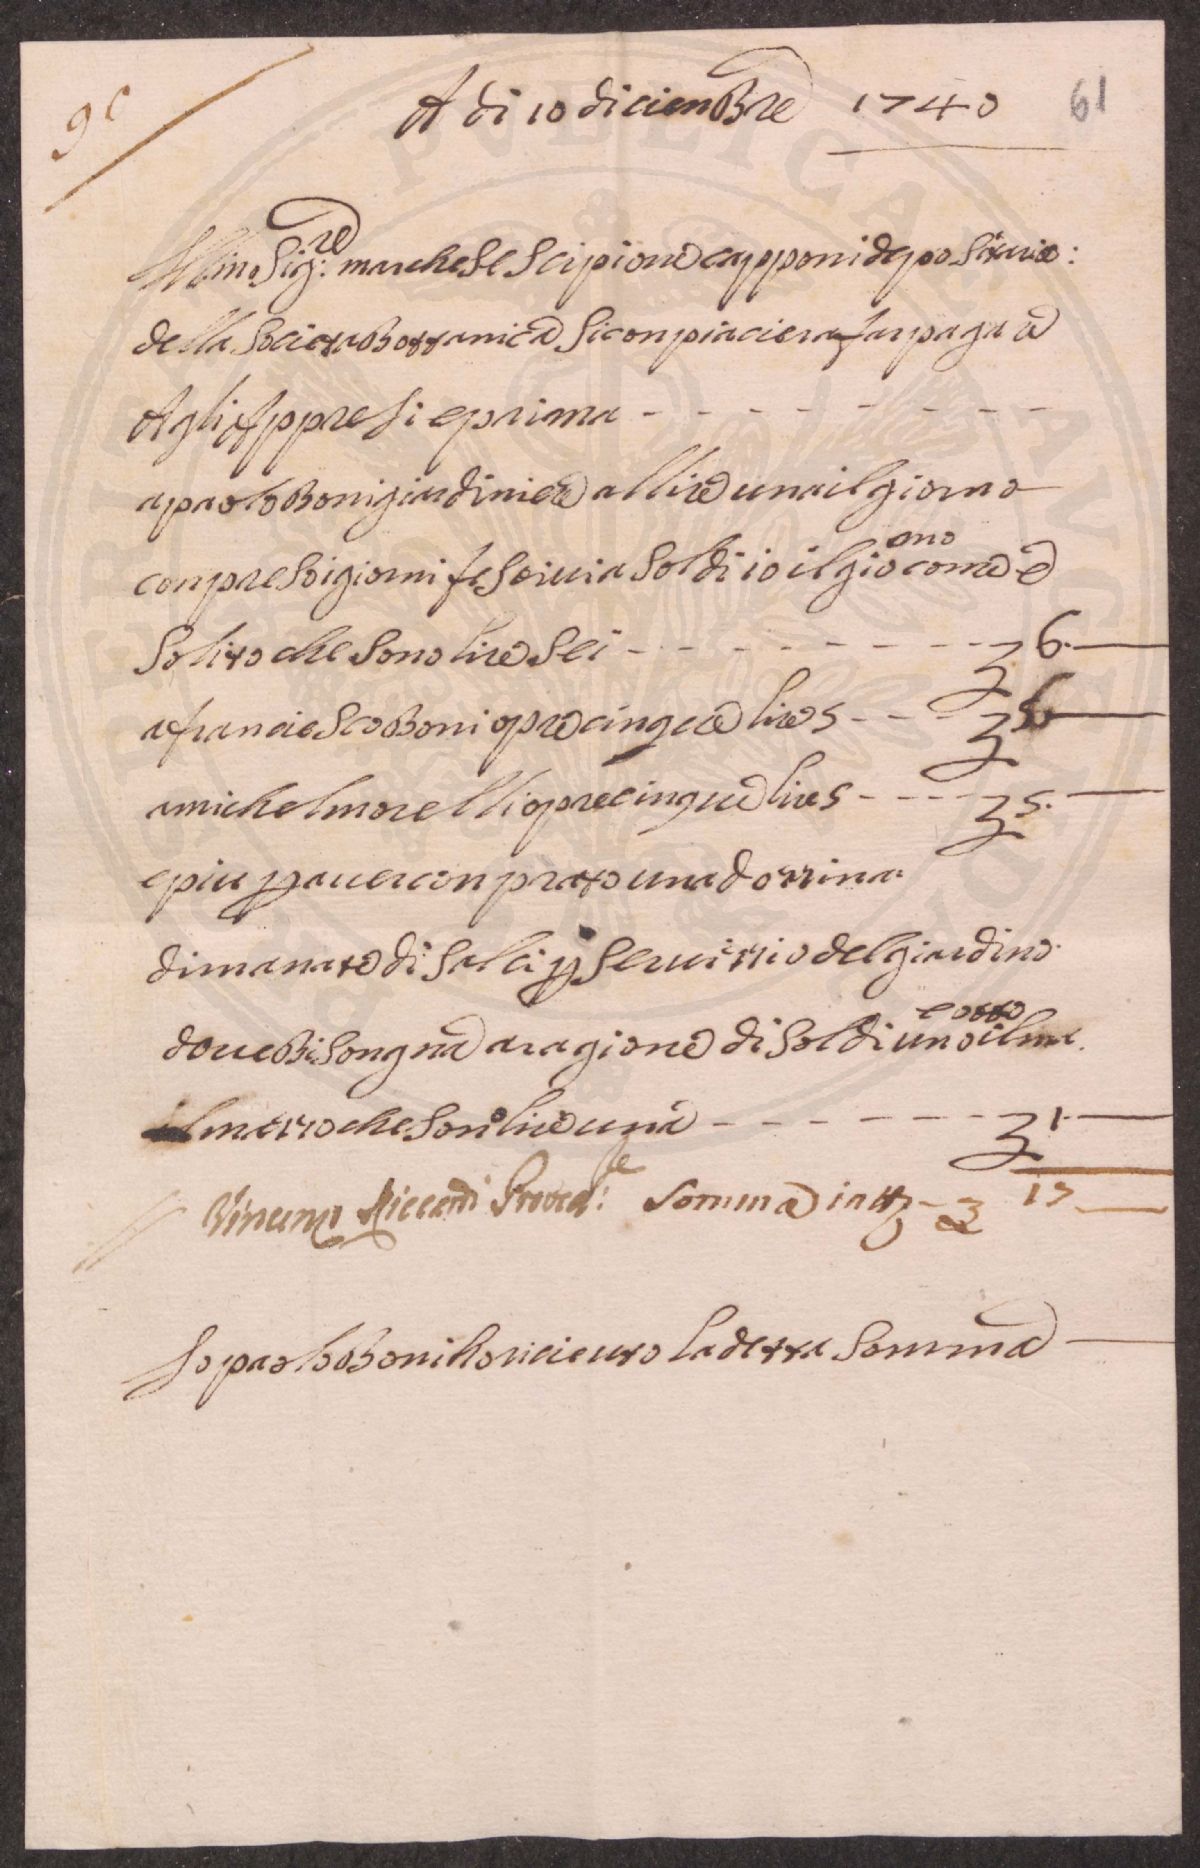 9c
A di 10 dicienbre 1740
61
Illmo Sig:re marchese Scipione capponi depositario:
della Societa Bottanica si conpiaciera far paga e
A gli Appresi e prima - - - - - - - - -
a paolo Boni giardiniere a llire una il giorno
conpreso i giorni festivi a soldi 10 il giorno come e
solito che sono lire sei - - - - - - - - £ 6.—
a franciesco Boni opre cinque lire 5 - - - £ 5.—
a michel morelli opre cinque lire 5 - - - - £ 5.—
e piu p aver conprato una dozzina
di manate di salci p servizzio del giardino
dove bisongna a ragione di soldi uno e otto il ma.
il mazzo che sono lire una - - - - - - £ 1.—
Vincenzo Riccardi Proved:re Somma in tt° - £ 17 —
Io paolo Boni ho ricieuto la detta somma —